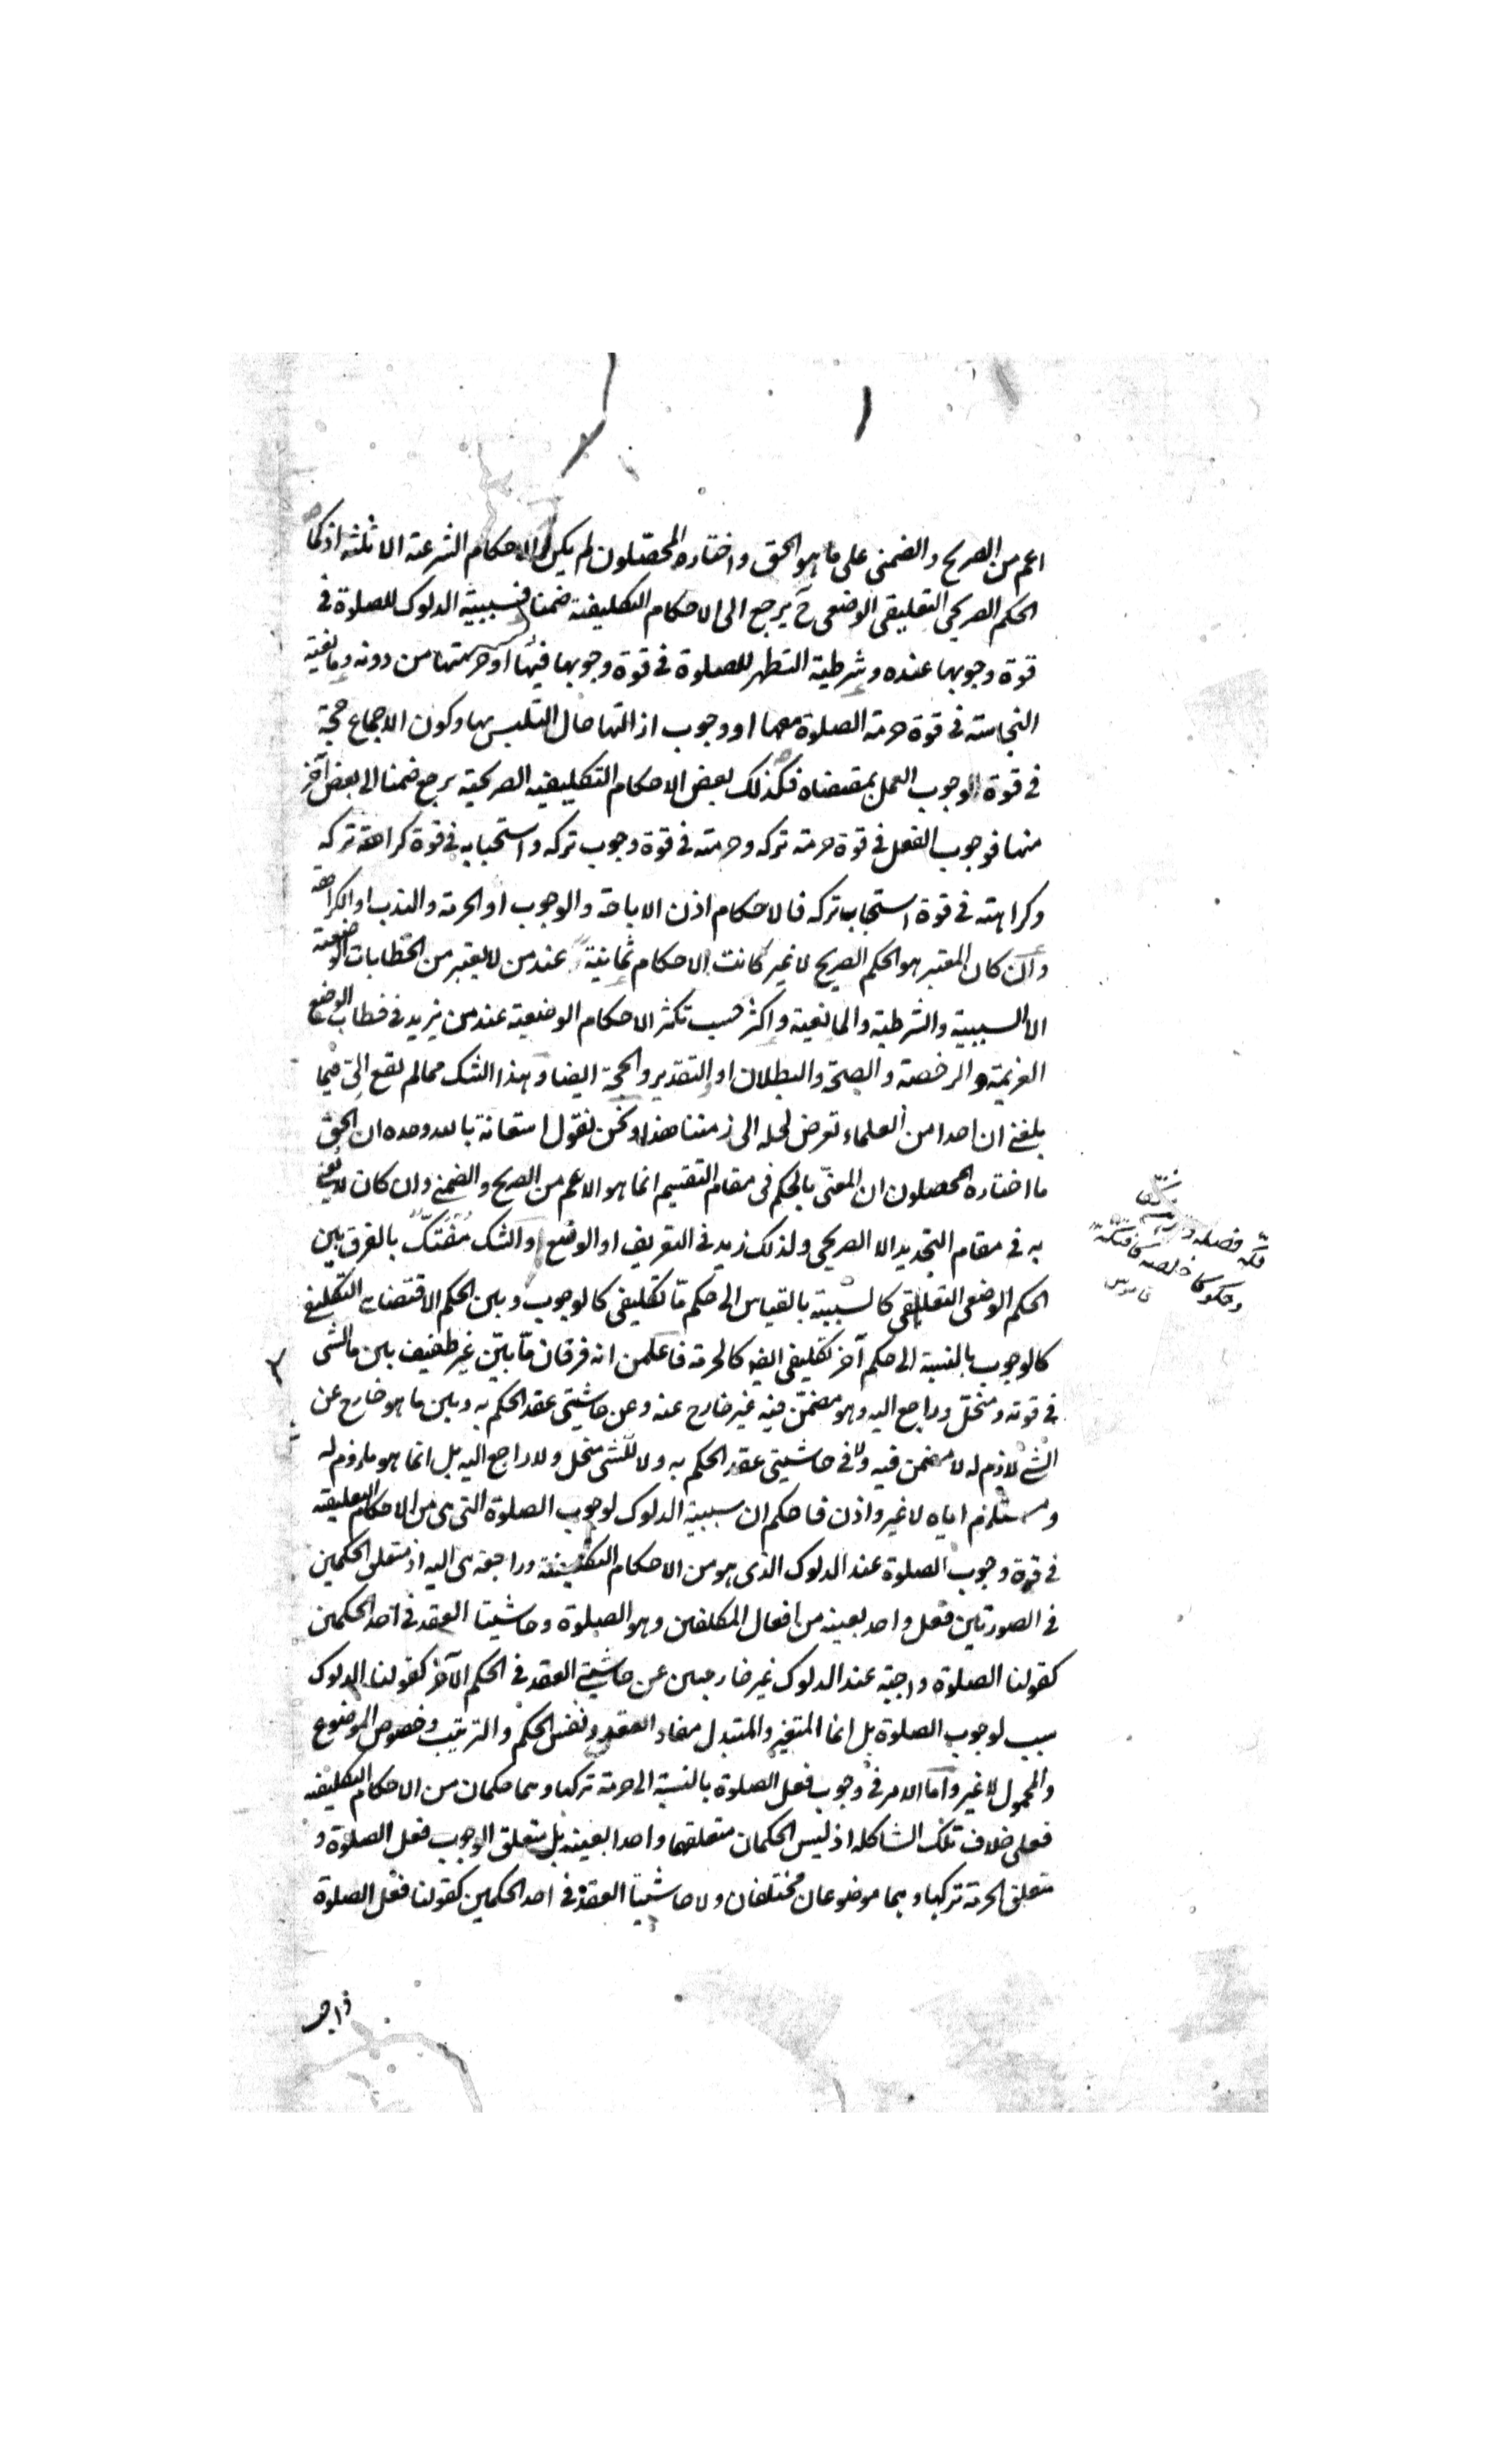 اعم من الصريح والضمنى على ما هو الحق واختاره المحصّلون لم يكن الاحكام الشرعية الا ثلثة اذ كما
الحكم الصريحى التعليقى الوضعى ح يرجع الى الاحكام التكليفية ضمنا فسببية الدلوك للصلوة فى
قوة وجوبها عنده وشرطية التطهر للصلوة فى قوة وجوبها فيها او حرمتها من دونه ومانعية
النجاسة فى قوة حرمة الصلوة معها او وجوب ازالتها حال التلبس بها وكون الاجماع حجة
فى قوة وجوب العمل بمقتضاه فكذلك بعض الاحكام التكليفية الصريحية يرجع ضمنا الى بعض آخر
منها فوجوب الفعل فى قوة حرمة تركه وحرمته فى قوة وجوب تركه واستحبابه فى قوة كراهة تركه
وكراهته فى قوة استحباب تركه فالاحكام اذن الاباحة والوجوب او الحرمة والندب او الكراهة
وان كان المعتبر هو الحكم الصريح لا غير كانت الاحكام ثمانية عند من لا يعتبر من الخطابات الوضعية
الا السببية والشرطية والمانعية واكثر حسب تكثر الاحكام الوضعية عند من يزيد فى خطاب الوضع
العزيمة والرخصة والصحة والبطلان او التقدير والحجة ايضا وهذا الشك مما لم يقع الىّ فيما
بلغنى ان احدا من العلماء تعرض لحله الى زمننا هذا ونحن نقول استعانة بالله وحده ان الحق
ما اختاره المحصلون ان المعنىّ بالحكم فى مقام التقسيم انما هو الاعم من الصريح والضمنى وان كان لا يعنى
به فى مقام التحديد الا الصريحى ولذلك زيد فى التعريف او الوضع والشك مُفْتَكّ بالفرق بين
الحكم الوضعى التعليقى كالسببية بالقياس الى حكم مّا تكليفى كالوجوب وبين الحكم الاقتضائى التكليفى
كالوجوب بالنسبة الى حكم آخر تكليفى ايضا كالحرمة فاعلمن انه فرقان مّا بيّن غير طفيف بين ما الشى
فى قوته ومنحلّ وراجع اليه وهو مضمّن فيه غير خارج عنه وعن حاشيتى عقد الحكم به وبين ما هو خارج عن
الشئ لازم له لا مضمن فيه ولا فى حاشيتى عقد الحكم به ولا الشى منحل ولا راجع اليه بل انما هو ملزوم له
ومستلزم اياه لا غير واذن فاحكم ان سببية الدلوك لوجوب الصلوة التى هى من الاحكام التعليقية
فى قوة وجوب الصلوة عند الدلوك الذى هو من الاحكام التكليفية وراجعة هى اليه اذ متعلق الحكمين
فى الصورتين فعل واحد بعينه من افعال المكلفين وهو الصلوة وحاشيتا العقد فى احد الحكمين
كقولنا الصلوة واجبة عند الدلوك غير خارجين عن حاشيتى العقد فى الحكم الآخر كقولنا الدلوك
سبب لوجوب الصلوة بل انما المتغير والمتبدل مفاد العقد ونفس الحكم والترتيب وخصوص الموضوع
والمحمول لا غير واما الامر فى وجوب فعل الصلوة بالنسبة الى حرمة تركها وهما حكمان من الاحكام التكليفية
فعلى خلاف تلك الشاكلة اذ ليس الحكمان متعلقهما واحدا بعينه بل متعلق الوجوب فعل الصلوة و
متعلق الحرمة تركها وهما موضوعان مختلفان ولا حاشيتا العقد فى احد الحكمين كقولنا فعل الصلوة
فكّه فصله
قاموس
واجب